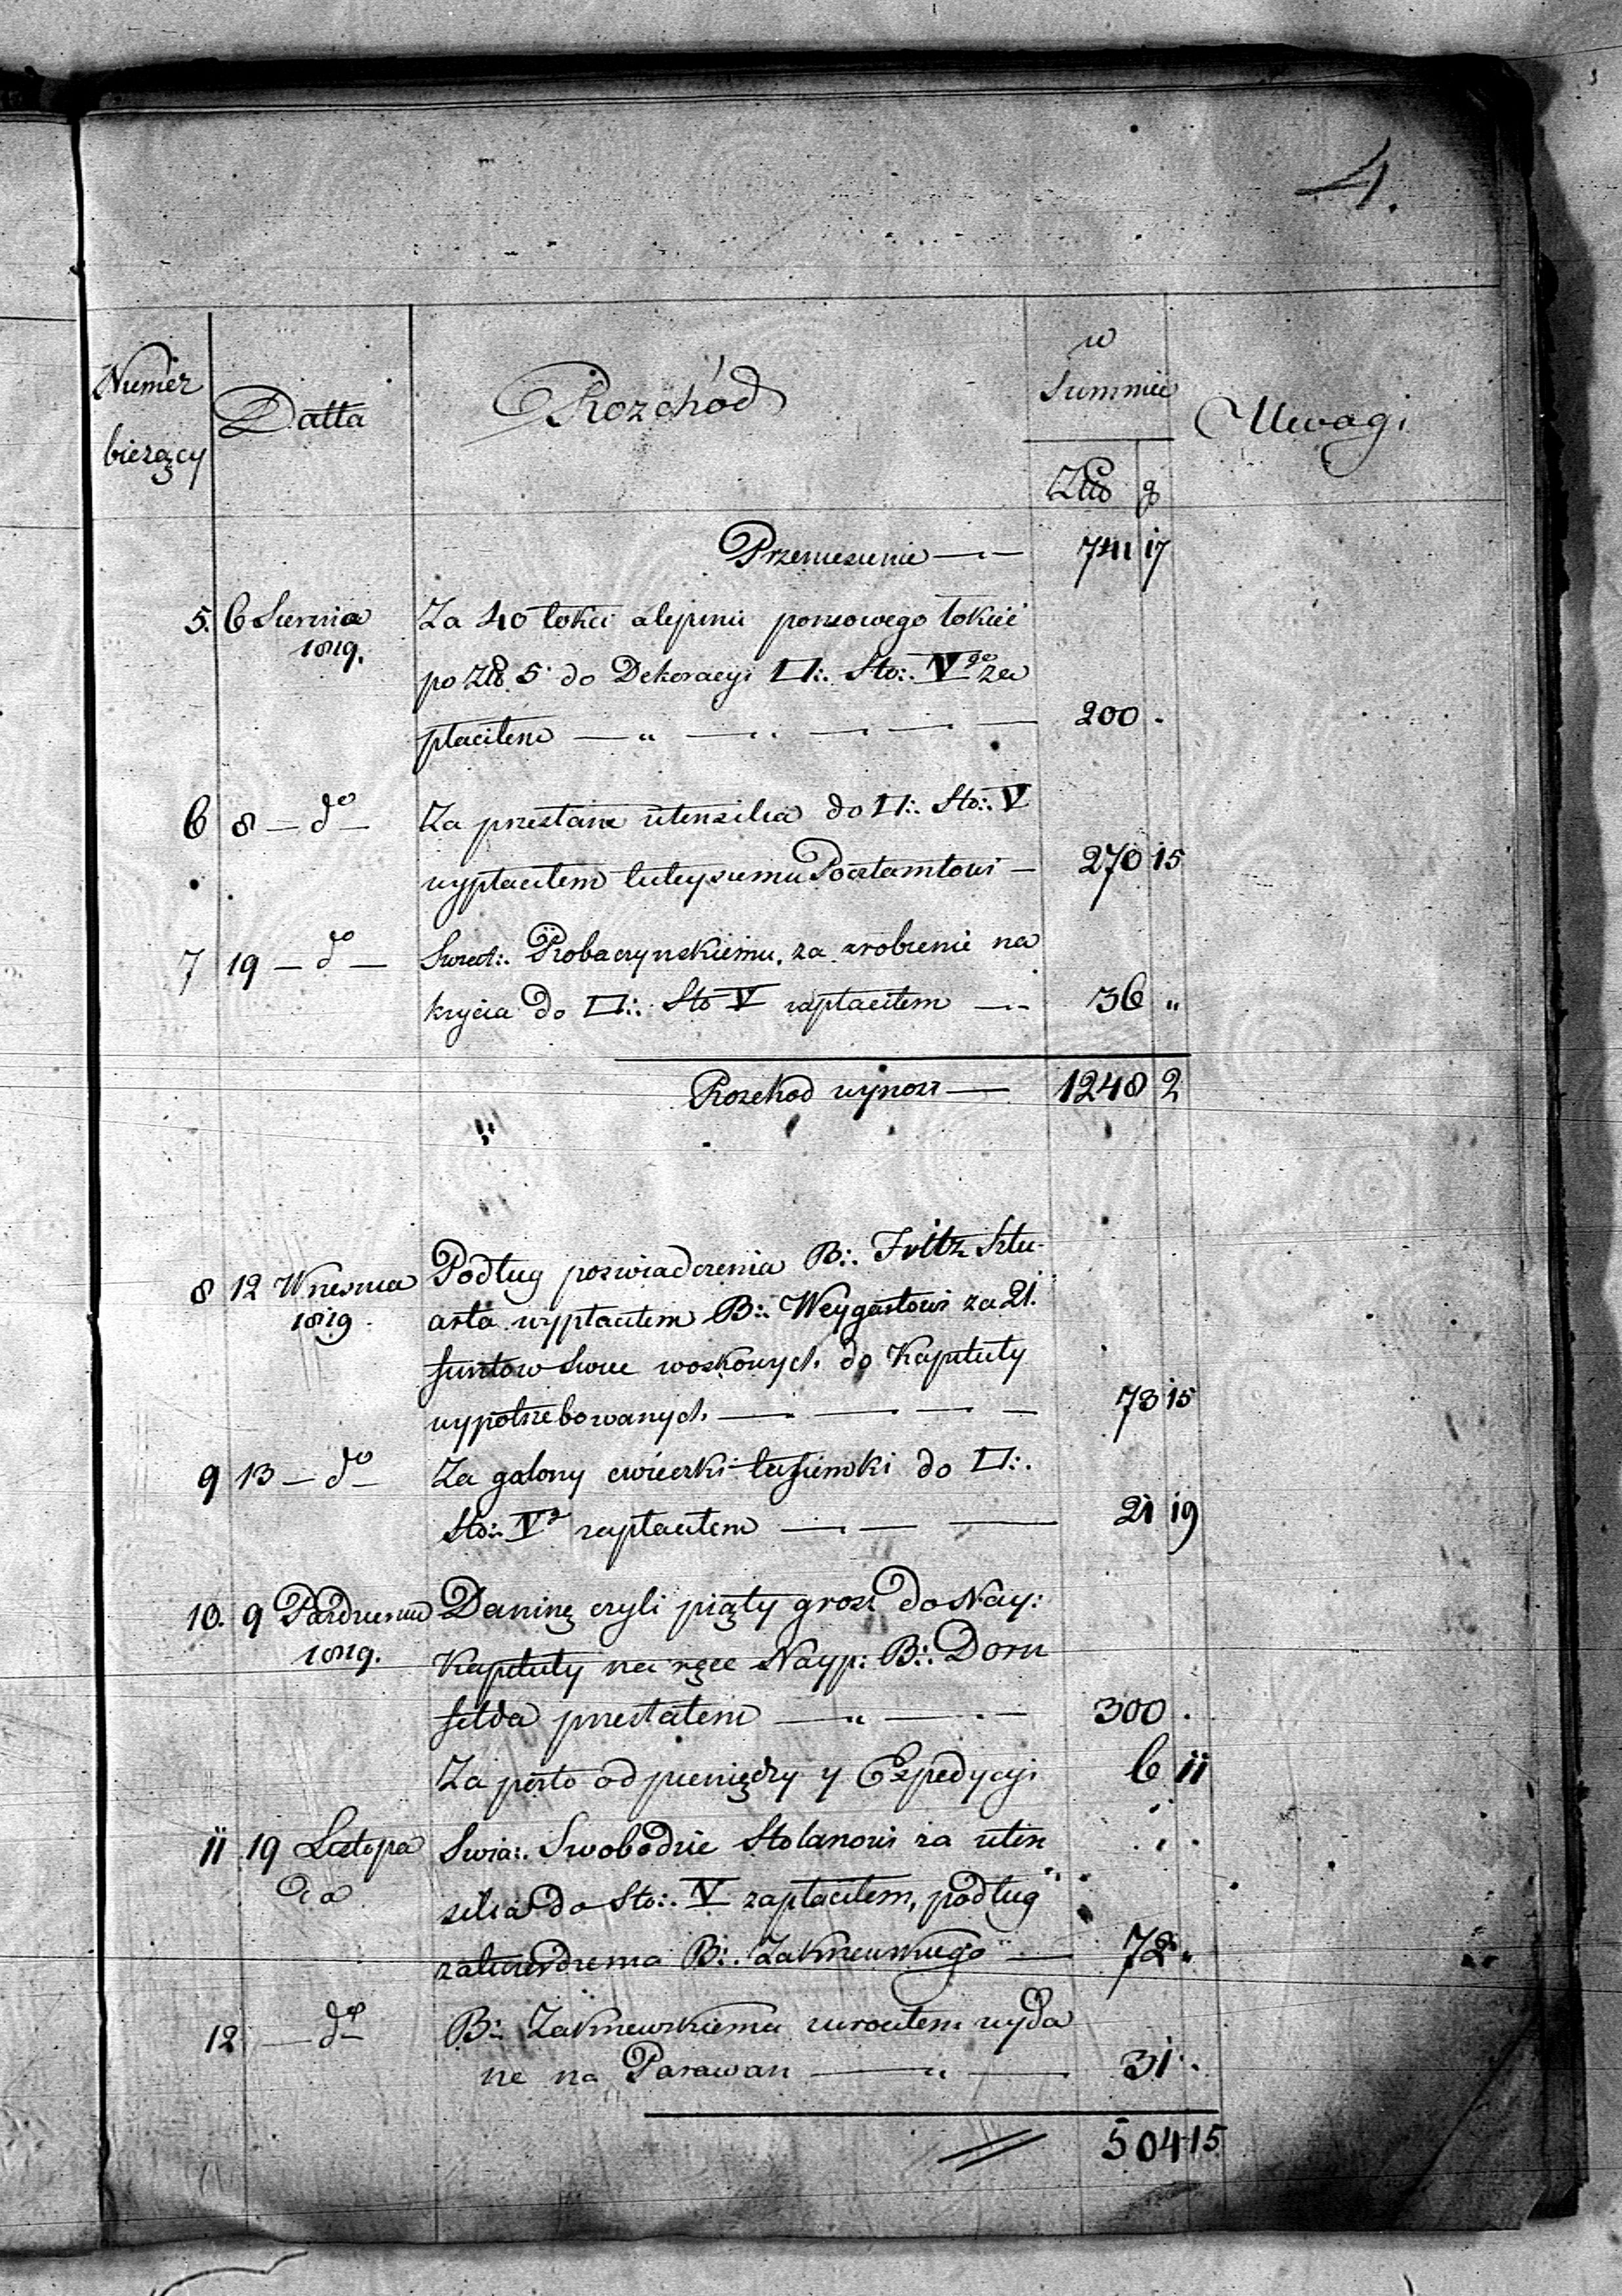 4.
Numer bieżący
Datta
Rozchód
w Summie
Uwagi
Złp g
Przeniesienie — 741 17
5. 6 Sierpnia Za 40 łokci alepinu ponsowego łokieć
1819. po Złp. 5 do Dekoracyi □∴ Sto∴ Vgo za
płaciłem — „ — — — 200 .
6 8 — do — Za przesłane utensilia do □∴ Sto∴ V
wypłaciłem tuteyszemu Pocztamtowi — 270 15
7 19 — do — Swiat∴ Probaczynskiemu, za zrobienie na
krycia do □∴ Sto V zapłaciłem — 36 „
Rozchod wynosi — 1248 2
8 12 Wrzesnia Podług poswiadczenia B∴ Fritz Stu-
1819. arta wypłaciłem B∴ Weygartowi za 21.
funtow swiec woskowych do Kapituły
wypotrzebowanych — — — — 73 15
9 13 — do — Za galony cwieczki tasiemki do □∴
Sto∴ Vo zapłaciłem — — — 21 19
10. 9 Pazdziernik Daninę czyli piąty grosz do Nay:
1819. Kapituły na ręce Nayp: B∴ Dorn
felda przesłałem — „ — 300 .
Za porto od pieniędzy y Expedycyi 6 11
11 19 Listopa Swia∴ Swobodzie Stolarzowi za uten
da silia do Sto∴ V zapłaciłem, podług
zatwierdzenia B∴ Zakrzewskiego — 72 „
12. — do — B∴ Zakrzewskiemu zwrociłem wyda
ne na Parawan — „ — 31 .
504 15